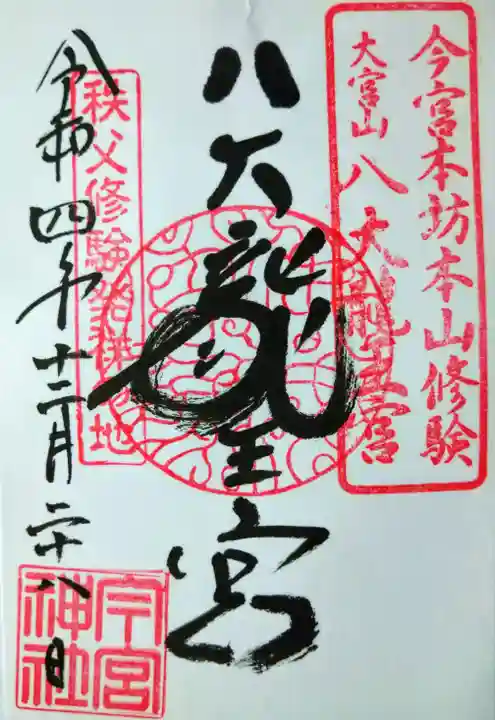 今宮本坊本山修験
大宮山八大龍王宮
八大龍王宮
秩父修験発祥の地
令和四年十二月二十八日
今宮神社